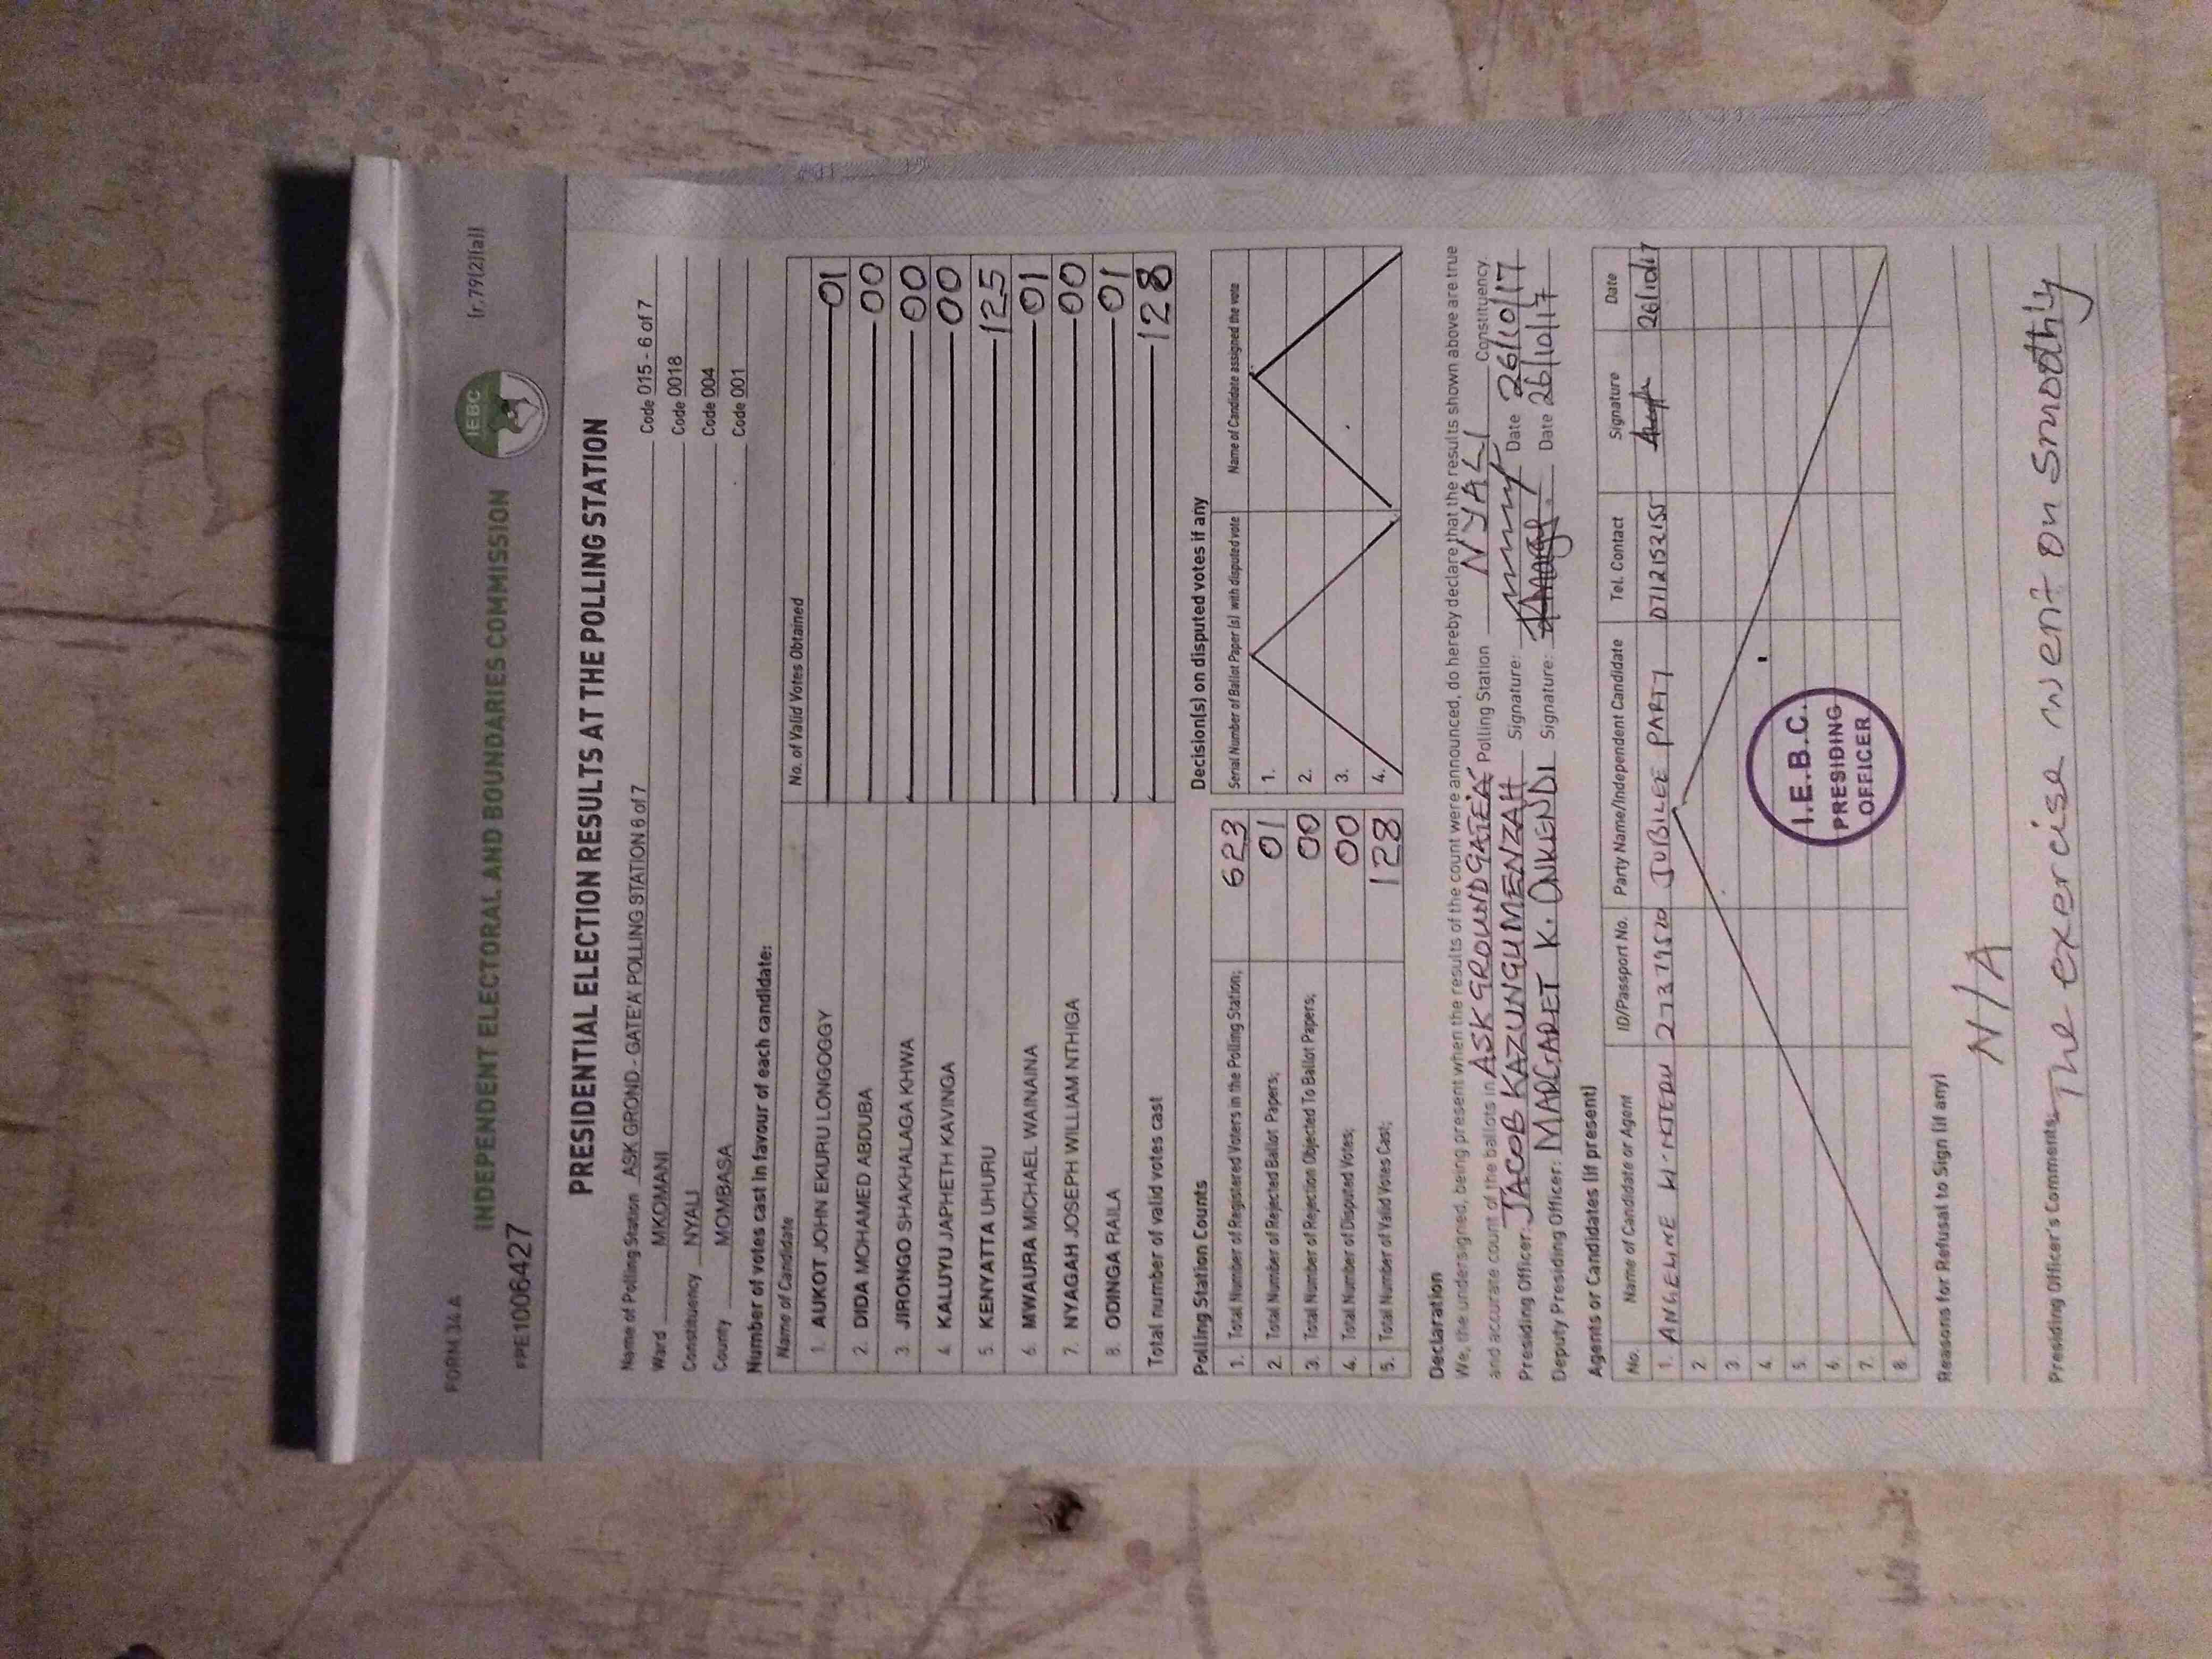 FORM 34 A
[r.79(2)(a)]
INDEPENDENT ELECTORAL AND BOUNDARIES COMMISSION
IEBC
PPE1006427
PRESIDENTIAL ELECTION RESULTS AT THE POLLING STATION
Name of Polling Station ASK GROND - GATE'A' POLLING STATION 6 of 7 Code 015 - 6 of 7
Ward MKOMANI Code 0018
Constituency NYALI Code 004
County MOMBASA Code 001
Number of votes cast in favour of each candidate:
Name of Candidate No. of Valid Votes Obtained
1. AUKOT JOHN EKURU LONGOGGY 01
2. DIDA MOHAMED ABDUBA 00
3. JIRONGO SHAKHALAGA KHWA 00
4. KALUYU JAPHETH KAVINGA 00
5. KENYATTA UHURU 125
6. MWAURA MICHAEL WAINAINA 01
7. NYAGAH JOSEPH WILLIAM NTHIGA 00
8. ODINGA RAILA 01
Total number of valid votes cast 128
Polling Station Counts
1. Total Number of Registered Voters in the Polling Station; 623
2. Total Number of Rejected Ballot Papers; 01
3. Total Number of Rejection Objected To Ballot Papers; 00
4. Total Number of Disputed Votes; 00
5. Total Number of Valid Votes Cast; 128
Decision(s) on disputed votes if any
Serial Number of Ballot Paper (s) with disputed vote Name of Candidate assigned the vote
1.
2.
3.
4.
Declaration
We, the undersigned, being present when the results of the count were announced, do hereby declare that the results shown above are true
and accurate count of the ballots in ASK GROUND GATE'A' Polling Station NYALI Constituency
Presiding Officer: JACOB KAZUNGU MENZAH Signature: Date 26/10/17
Deputy Presiding Officer: MARGARET K. ONKENDI Signature: Date 26/10/17
Agents or Candidates (if present)
No. Name of Candidate or Agent ID/Passport No. Party Name/Independent Candidate Tel. Contact Signature Date
1. ANGELINE JUBILEE PARTY 0712152155 26/10/17
2.
3.
4.
5.
6.
7.
8.
I.E.B.C.
PRESIDING
OFFICER
Reasons for Refusal to Sign (if any)
N/A
Presiding Officer's Comments The exercise went on smoothly